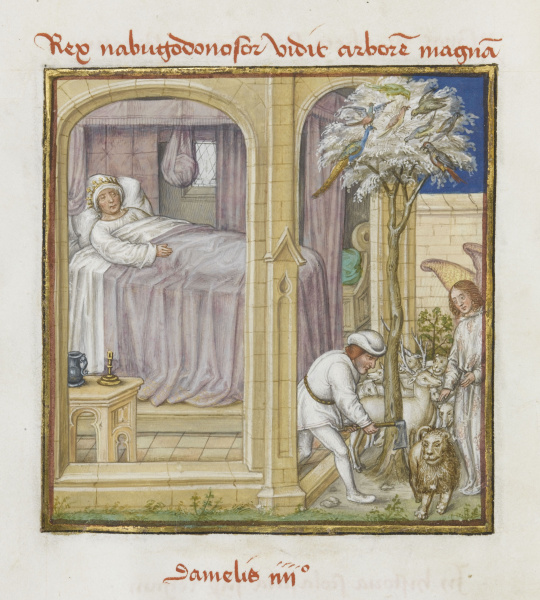 Rex nabugodonosor vidit arborē magnā
danielis iiii°